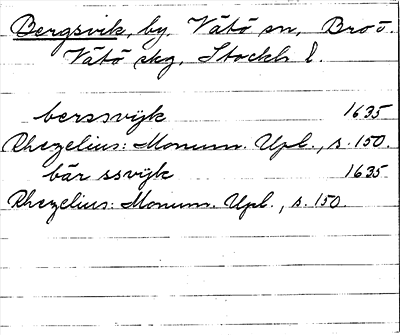 Bergsvik, by, Vätö sn, Bro o.
Vätö skg, Stockh l.
berssvijk 1635
Rhezelius: Monum. Upl., s. 150.
bär ssvijk 1635
Rhezelius: Monum. Upl., s. 150